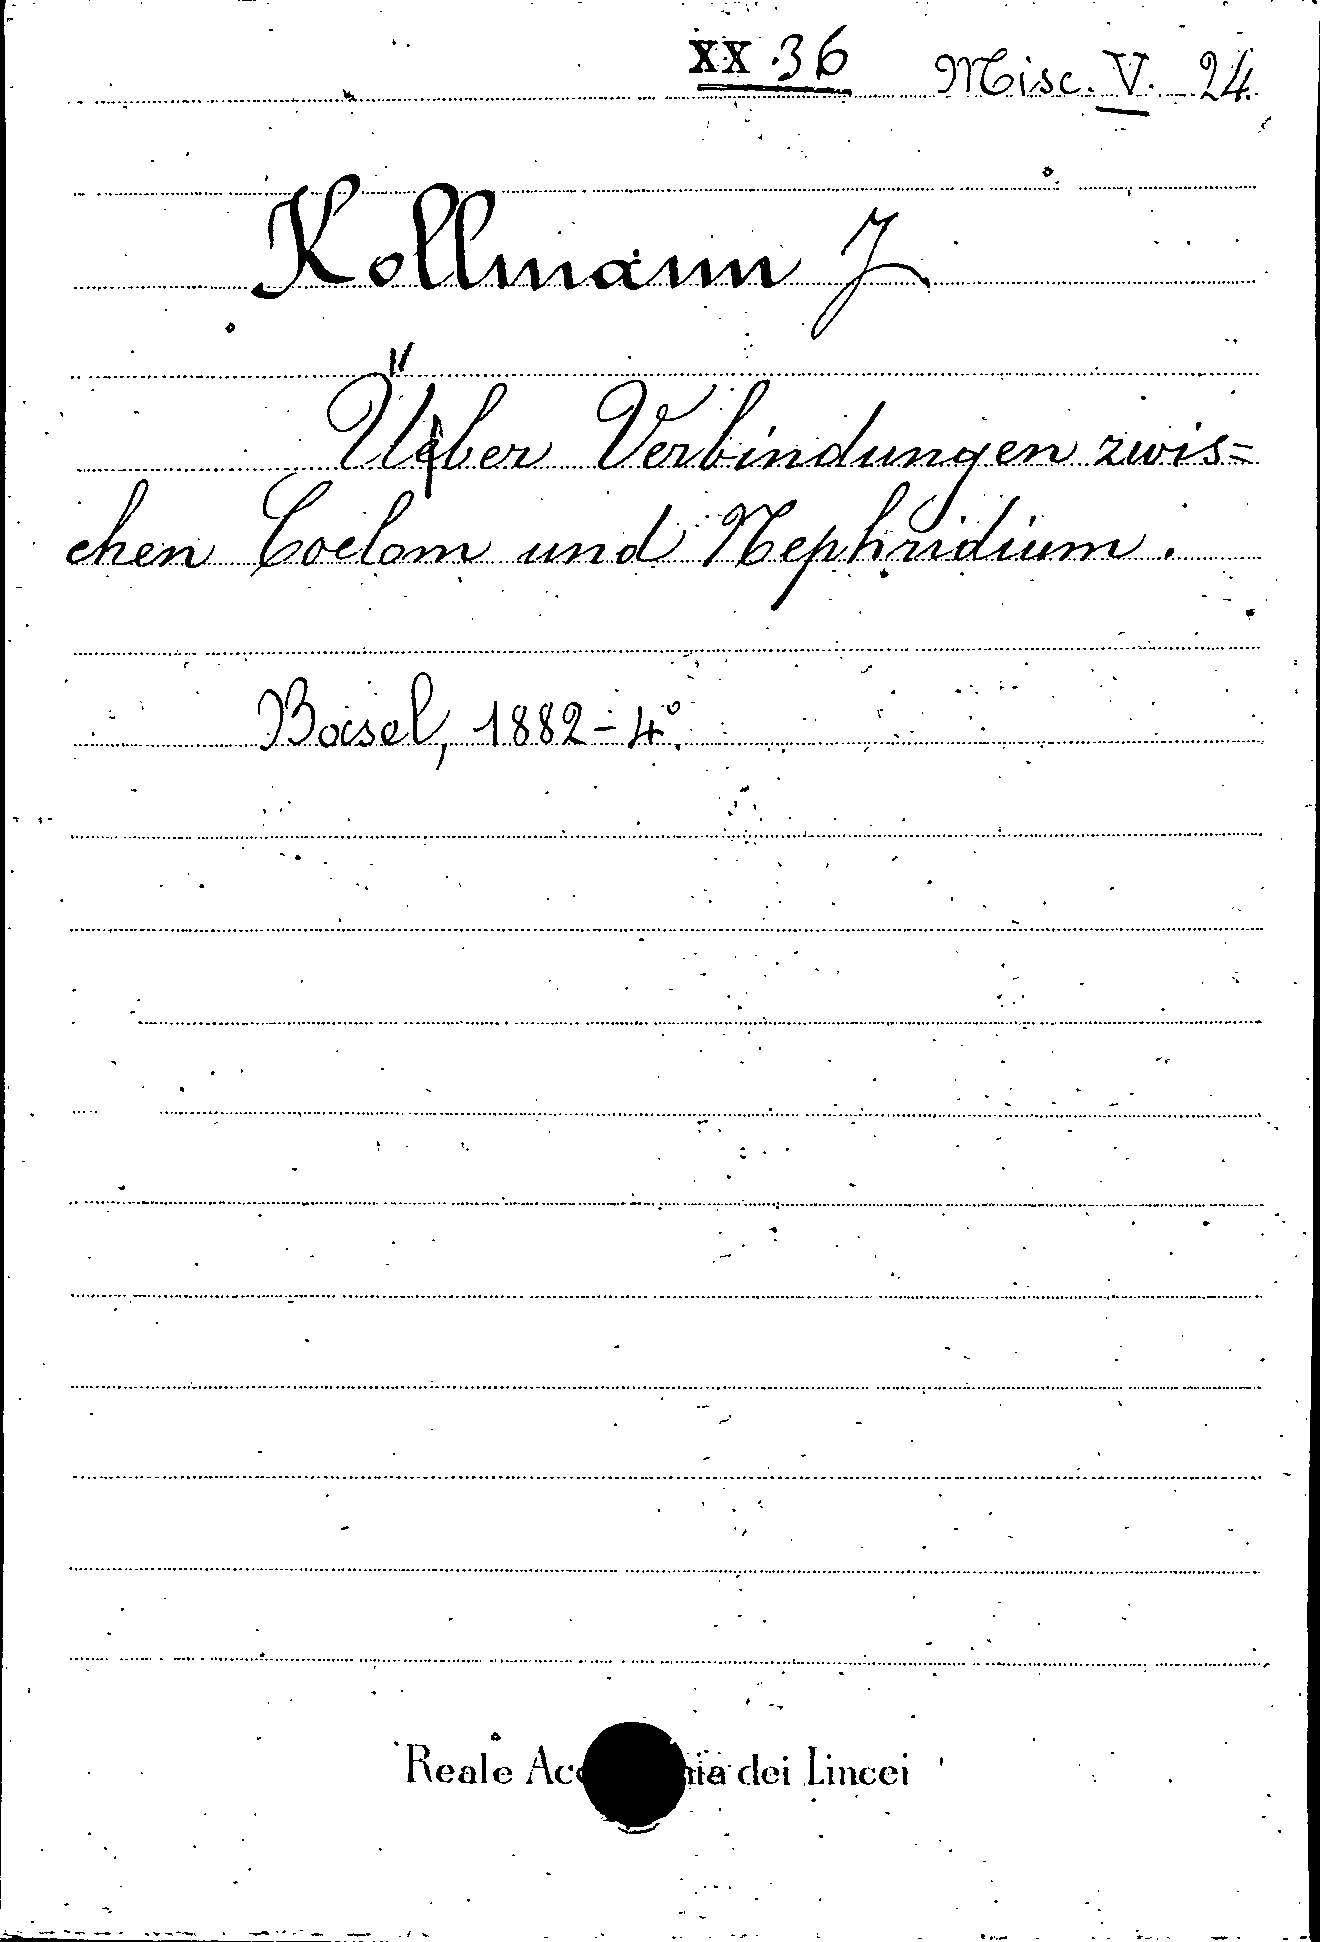 XX.36 Misc. V. 24.
Kollmann J.
Über Verbindungen zwis=
chen Coelom und Nephridium.
Basel, 1882-4°.
Reale Acc ia dei Lincei